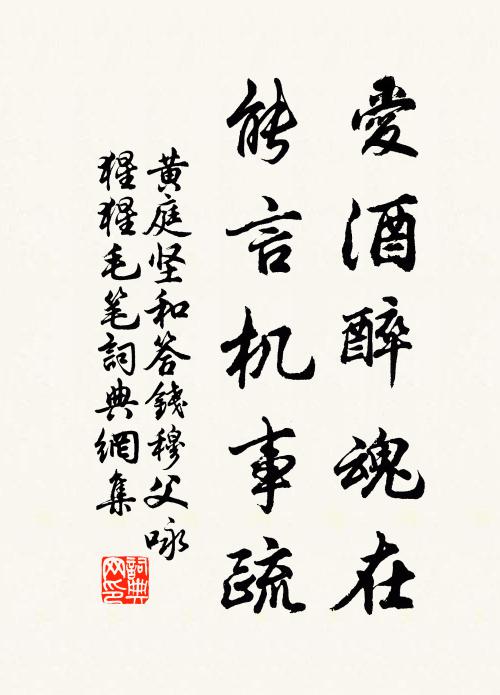 愛酒醉魂在
能言机事疏
黄庭坚和答錢穆父咏
猩猩毛笔詞典網集
詞典
网印